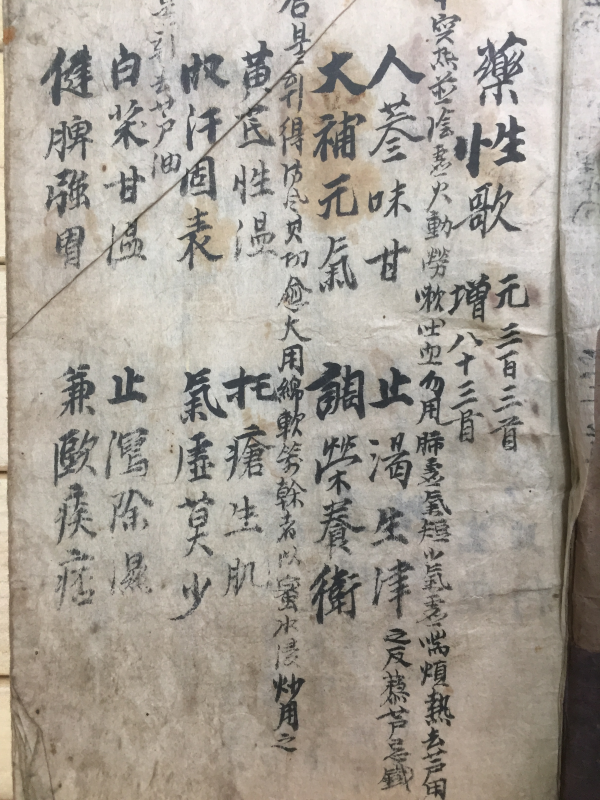 藥性歌
元三百三首
增八十三首
中突然並陰虛火動勞嗽吐血勿用肺虛氣短少氣虛喘煩熱去芦用
人參味甘 止渴生津
之反藜芦忌鐵
大補元氣 調榮養衛
得防風其功愈大用綿軟箭幹者以蜜水浸炒用之
黄芪性温 托瘡生肌
收汗固表 氣虛莫少
去芦油
白术甘温 止瀉除濕
健脾强胃 兼歐痰痞